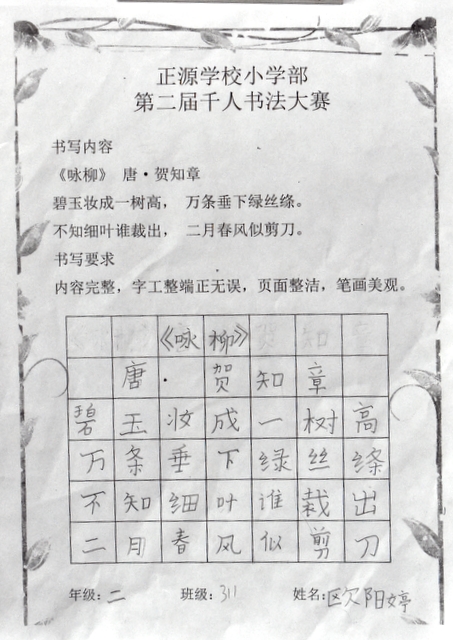 正源学校小学部
第二届千人书法大赛
书写内容
《咏柳》 唐·贺知章
碧玉妆成一树高， 万条垂下绿丝绦。
不知细叶谁裁出， 二月春风似剪刀。
书写要求
内容完整，字工整端正无误，页面整洁，笔画美观。
《咏柳》
唐·贺知章
碧玉妆成一树高
万条垂下绿丝绦
不知细叶谁裁出
二月春风似剪刀
年级：二 班级：311 姓名：欧阳婷